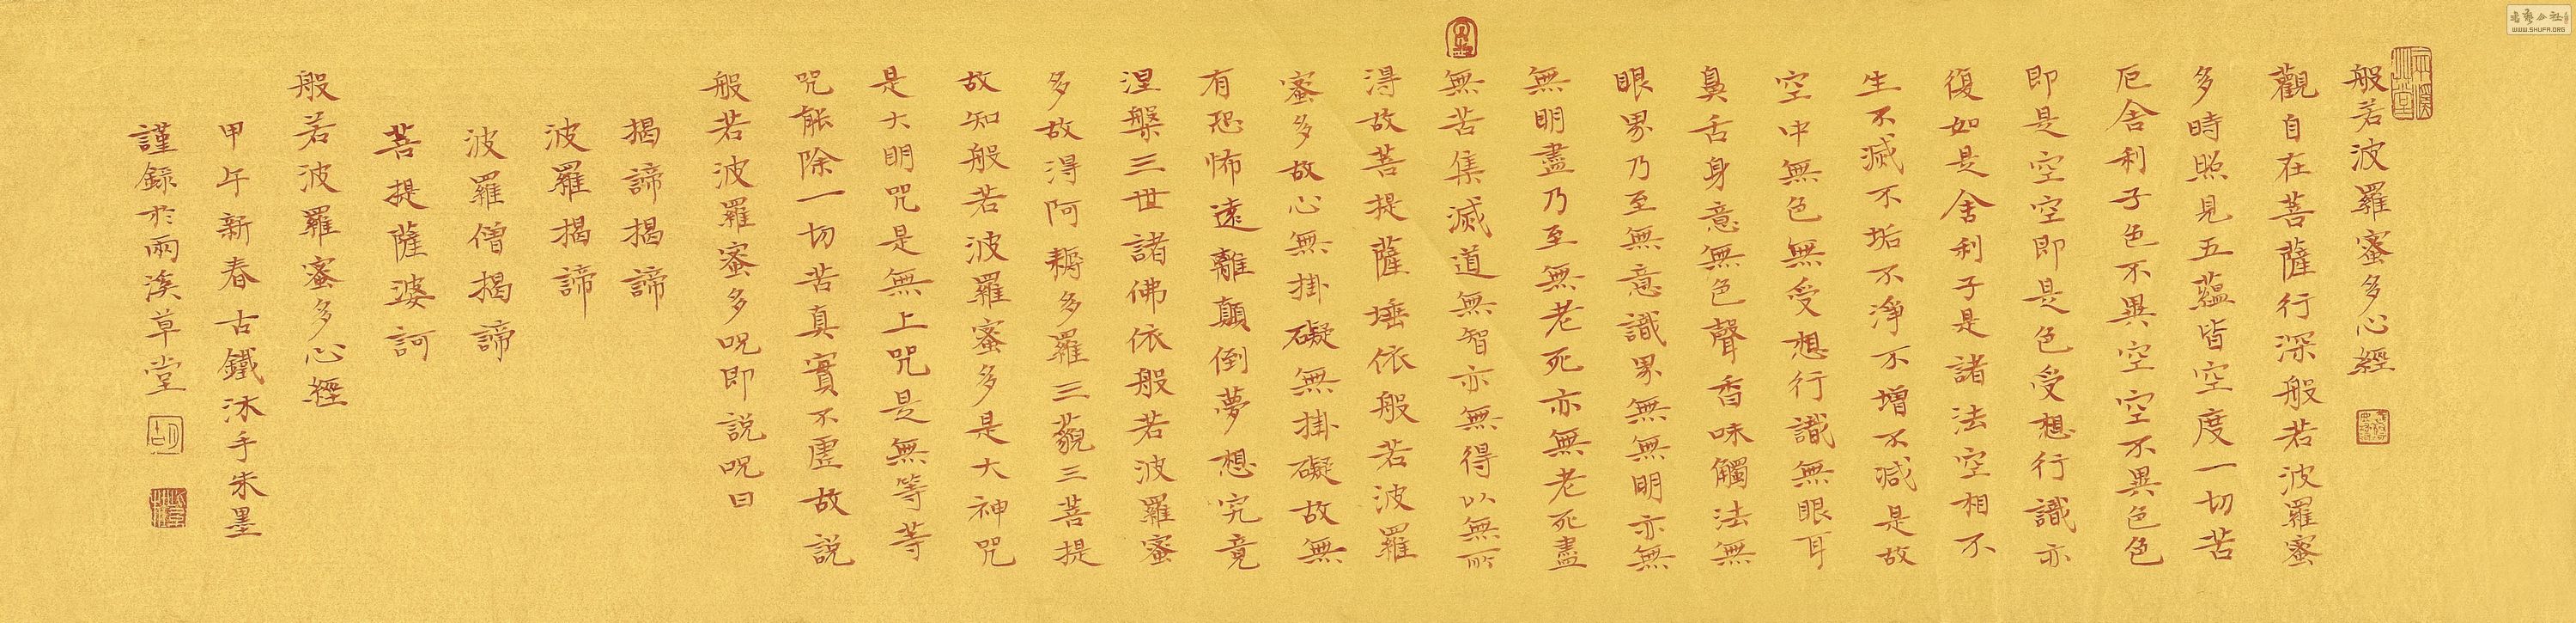 般若波羅蜜多心經
觀自在菩薩行深般若波羅蜜
多時照見五蘊皆空度一切苦
厄舍利子色不異空空不異色色
即是空空即是色受想行識亦
復如是舍利子是諸法空相不
生不滅不垢不淨不增不減是故
空中無色無受想行識無眼耳
鼻舌身意無色聲香味觸法無
眼界乃至無意識界無無明亦無
無明盡乃至無老死亦無老死盡
無苦集滅道無智亦無得以無所
得故菩提薩埵依般若波羅
蜜多故心無掛礙無掛礙故無
有恐怖遠離顛倒夢想究竟
涅槃三世諸佛依般若波羅蜜
多故得阿耨多羅三藐三菩提
故知般若波羅蜜多是大神咒
是大明咒是無上咒是無等等
咒能除一切苦真實不虛故說
般若波羅蜜多呪即說呪曰
揭諦揭諦
波羅揭諦
波羅僧揭諦
菩提薩婆訶
般若波羅蜜多心經
甲午新春古鐵沐手朱墨
謹錄於兩溪草堂
WWW.SHUFA.ORG